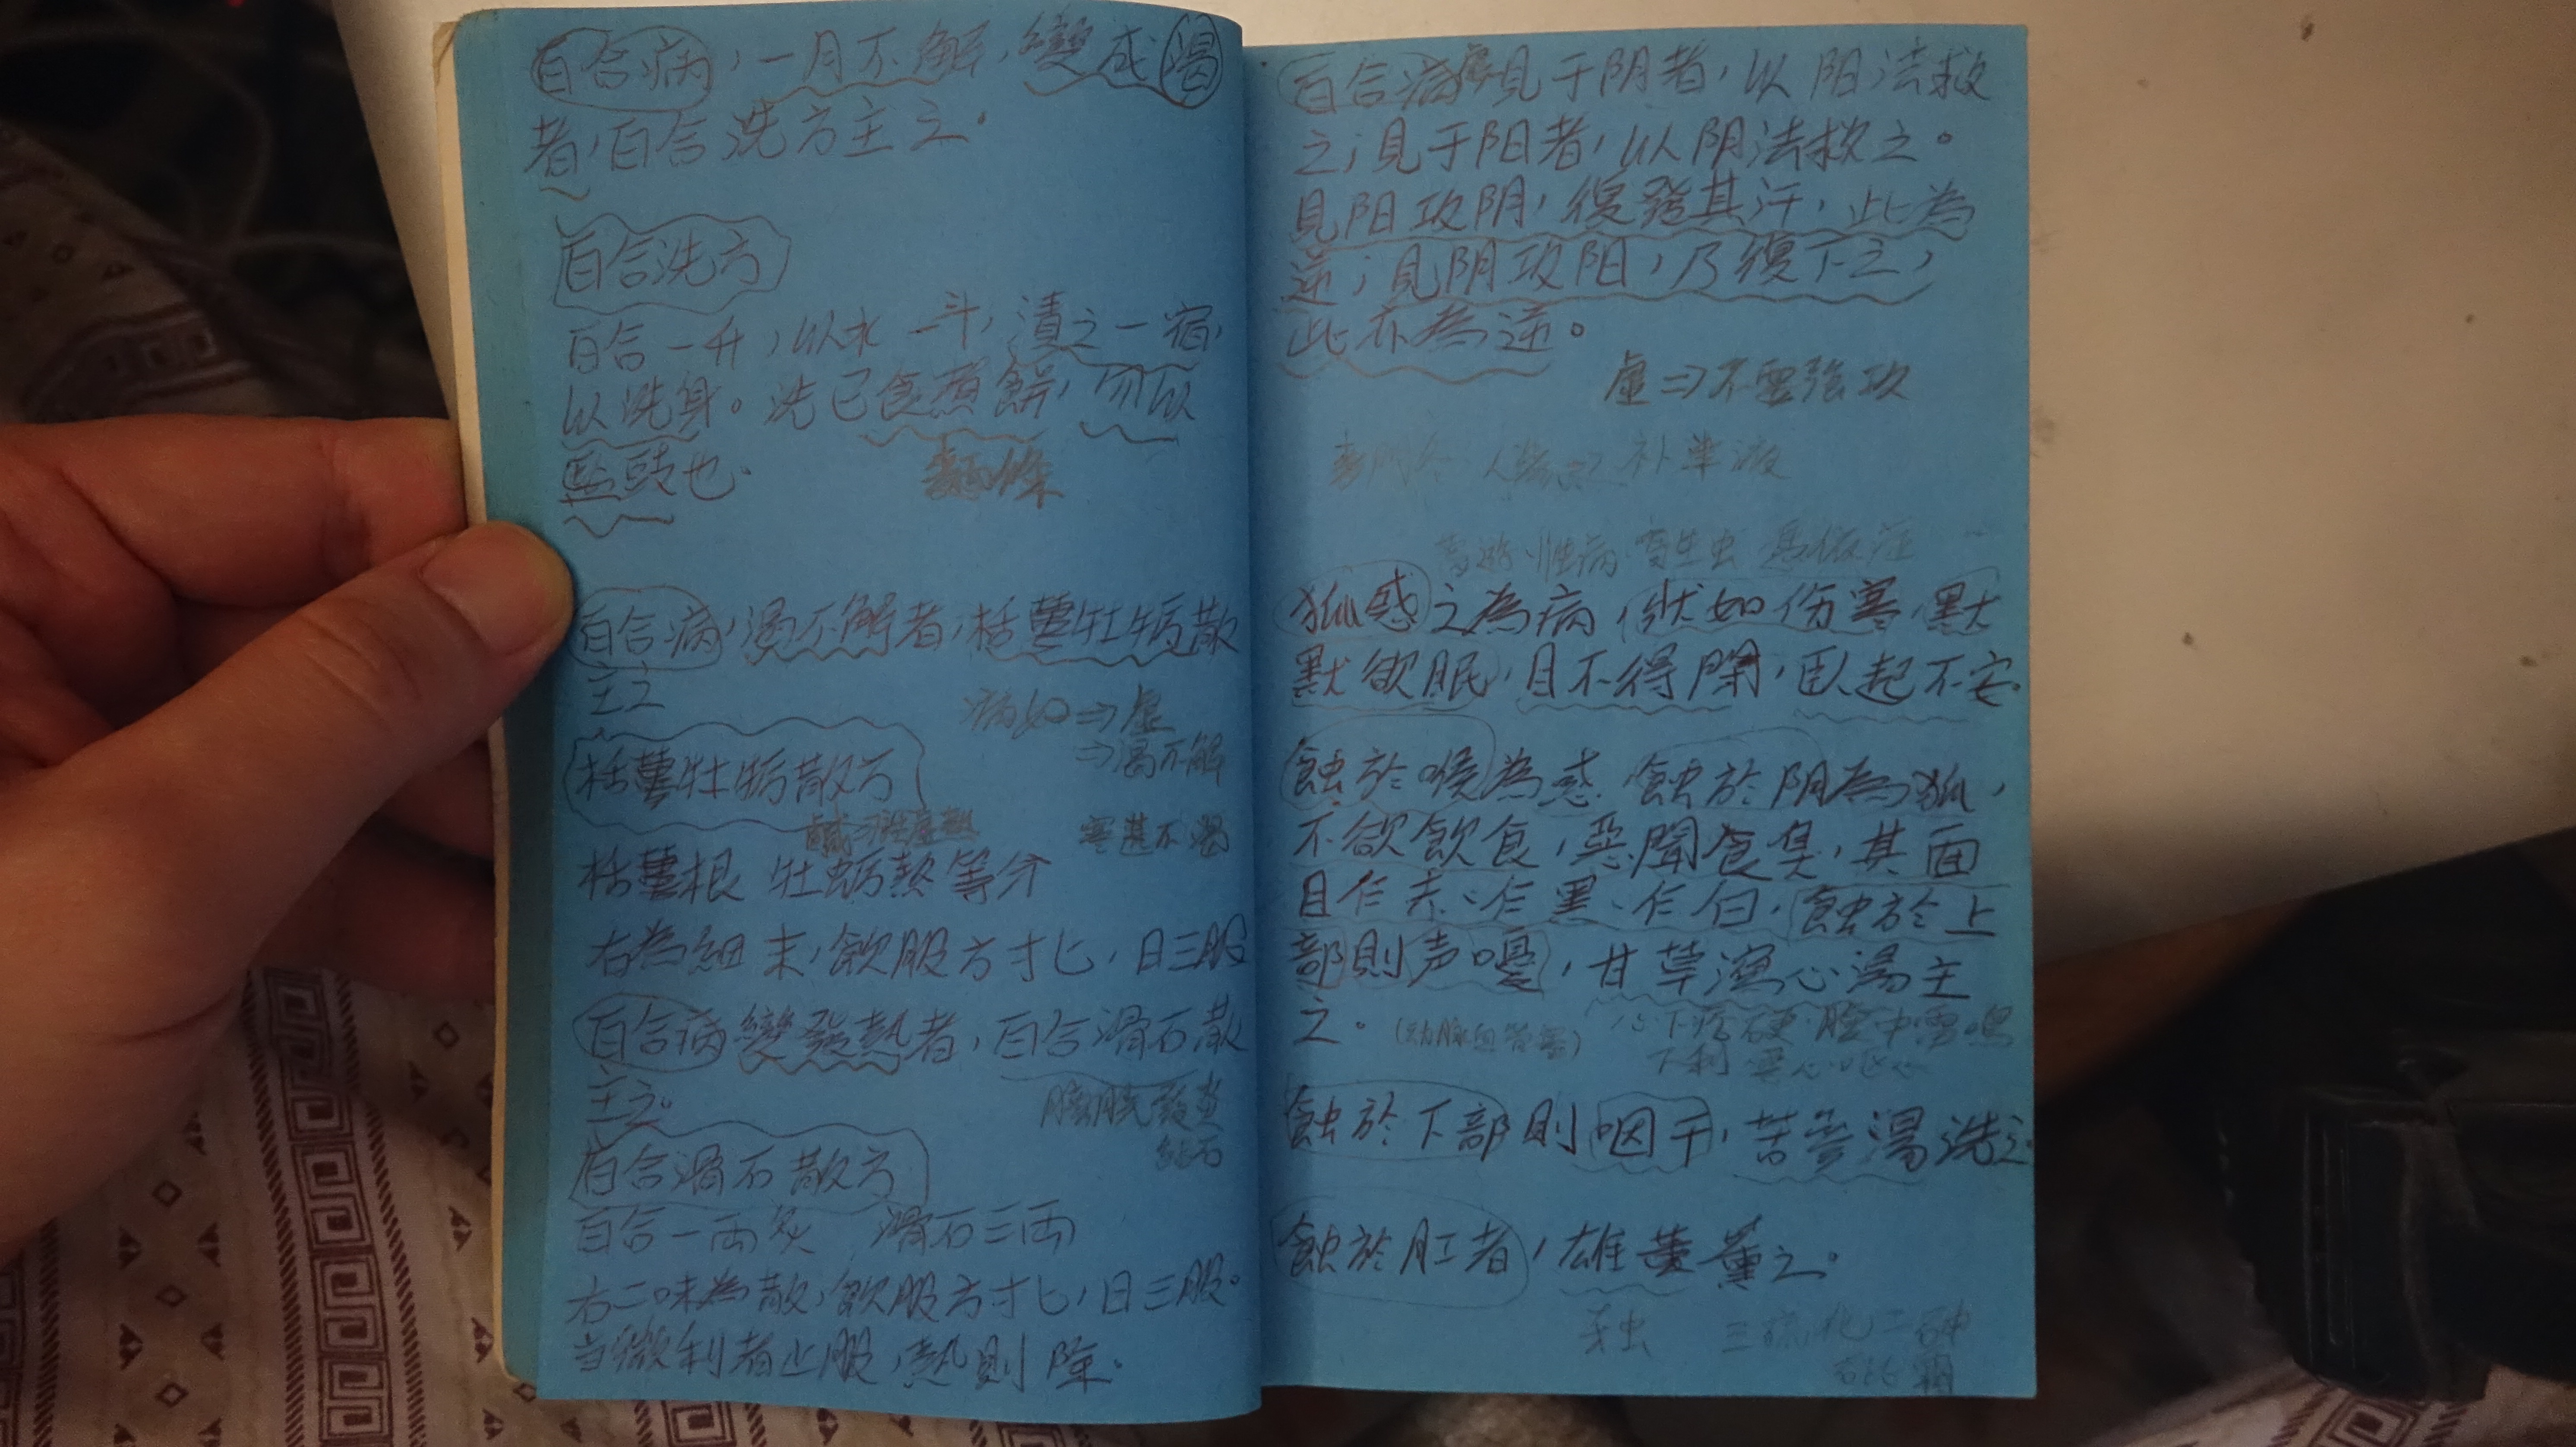 百合病，一月不解，變成渴
者，百合洗方主之。
百合洗方
百合一升，以水一斗，漬之一宿，
以洗身。洗已食煮餅，勿以
盬豉也。
百合病，渴不解者，栝蔞牡蛎散
主之
病好⇒虛
⇒渴不解
栝蔞牡蛎散方
寒甚不渴
栝蔞根 牡蛎熬等分
右為細末，飲服方寸匕，日三服
百合病變發熱者，百合滑石散
主之。
膀胱發炎
結石
百合滑石散方
百合一両炙 滑石三両
右二味為散，飲服方寸匕，日三服。
当微利者止服，熱則除。
百合病見于阴者，以阳法救
之；見于阳者，以阴法救之。
見阳攻阴，復發其汗，此為
逆；見阴攻阳，乃復下之，
此亦為逆。
虛⇒不要強攻
麥門冬 人蔘 补津液
性病 寄生虫
狐惑之為病，狀如伤寒，默
默欲眠，目不得閉，臥起不安
蝕於喉為惑，蝕於阴為狐，
不欲飲食，惡聞食臭，其面
目乍赤、乍黑、乍白，蝕於上
部則声嗄，甘草瀉心湯主
之。
心下痞硬 腹中雷鳴
下利
蝕於下部則咽干，苦參湯洗之
蝕於肛者，雄黄薰之。
三硫化二砷